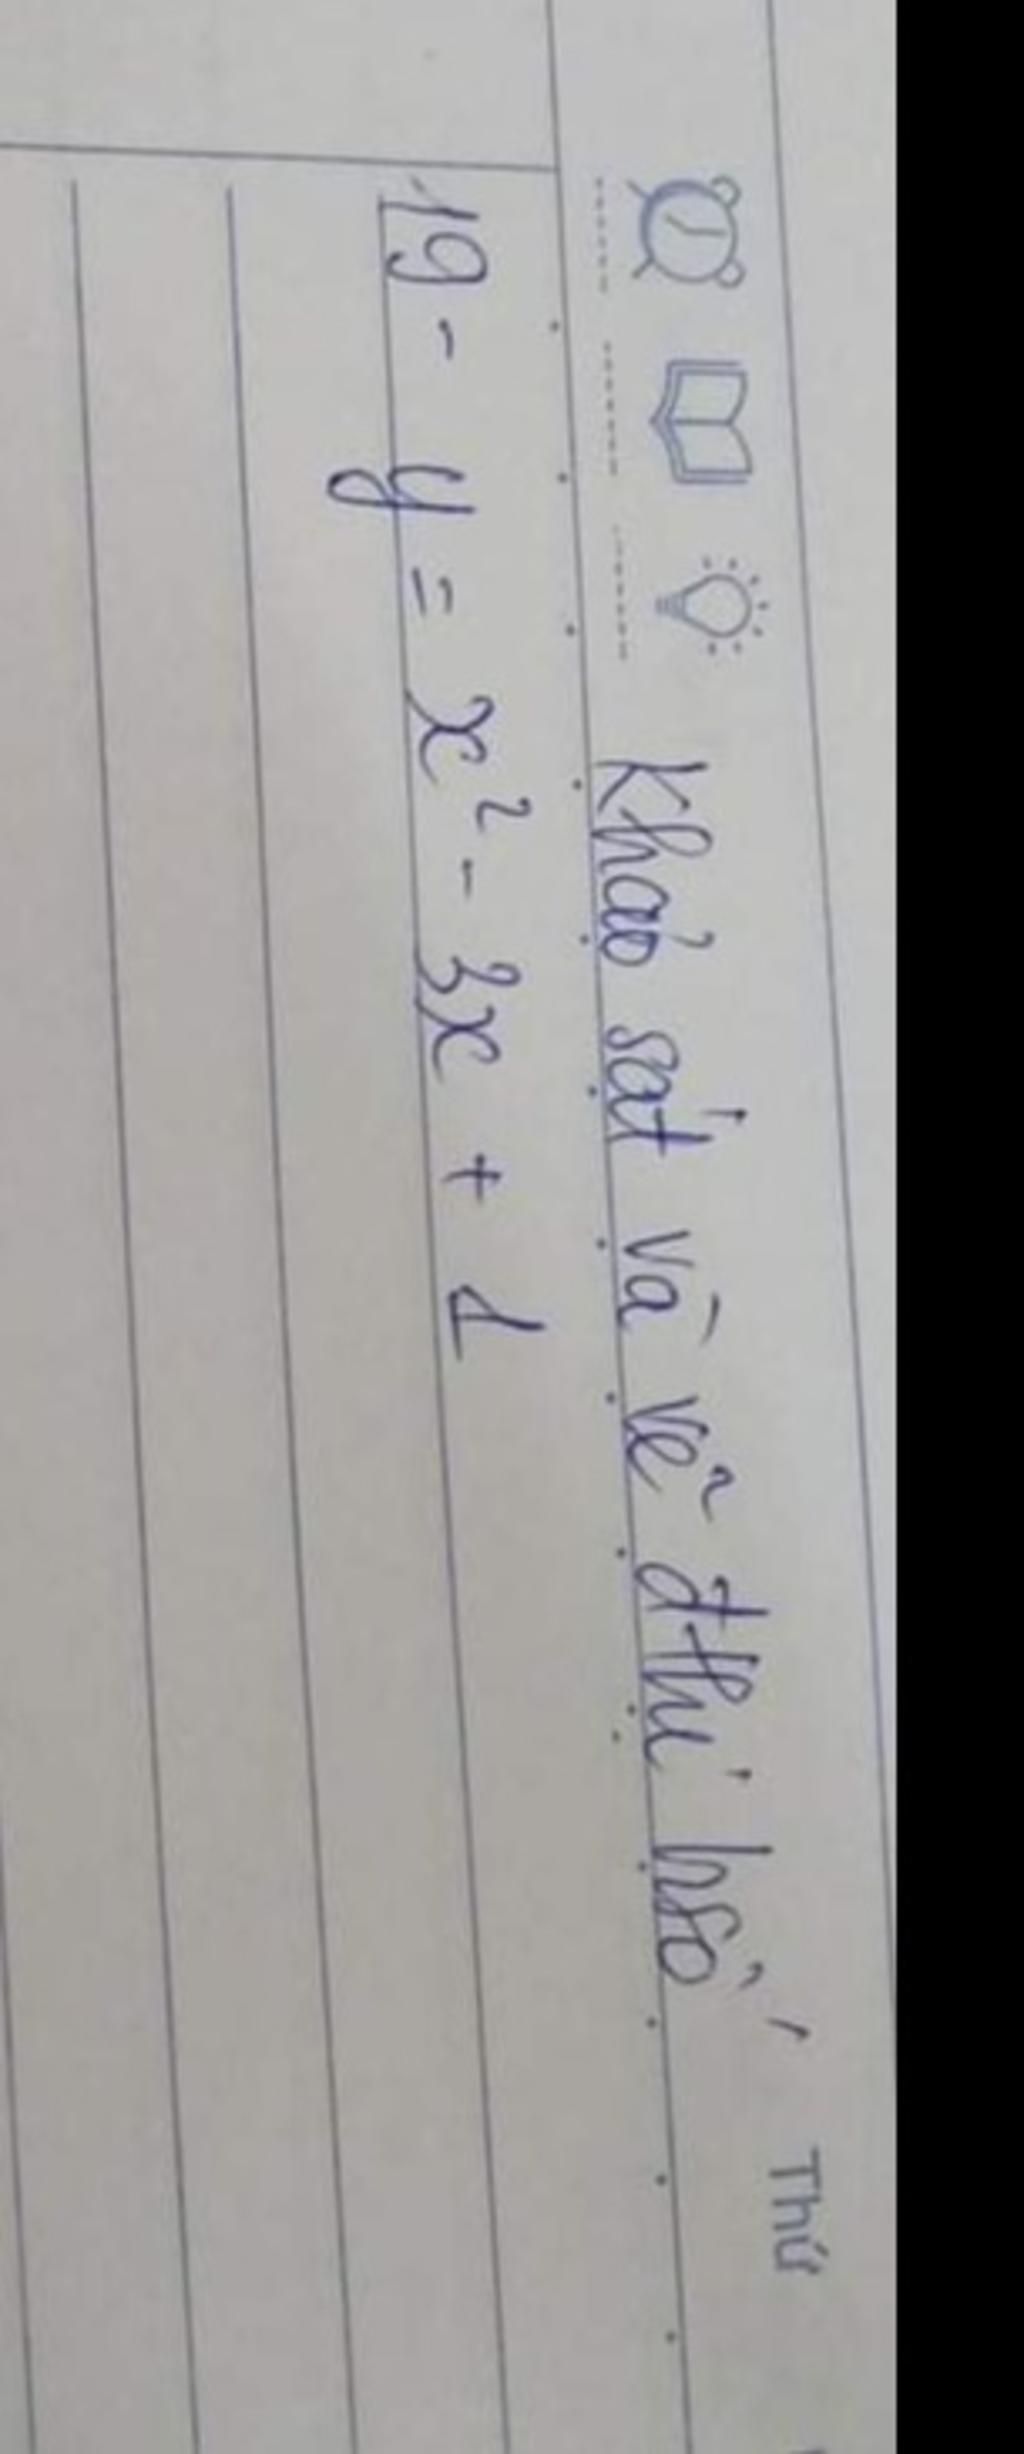 Thứ
Khảo sát và vẽ đthị hsố
19 - y = x² - 3x + 1